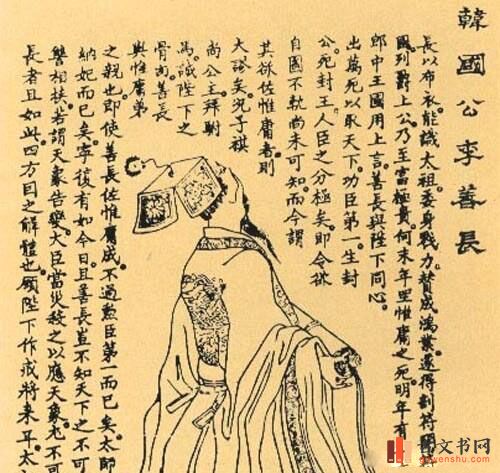 韓國公李善長
長以布衣能識太祖委身戮力贊成鴻業遂得剖符開
國列爵上公乃至富極貴何末年坐惟庸之死明年有
郎中王國用上言善長與陛下同心
出萬死以取天下功臣第一生封
公死封王人臣之分極矣即令欲
自圖不軌尚未可知而今謂
其欲佐惟庸者則
大謬矣況子祺
尚公主拜駙
馬誠陛下之
骨肉善長
與惟庸弟
之親也即使善長佐惟庸成不過勳臣第一而已矣太師
納妃而已矣寧復有如今日且善長豈不知天下之不可
相扶若謂天象告變大臣當災殺之以應天象尤不可
長者且如此四方因之解體也願陛下作戒將來耳太
古文书网